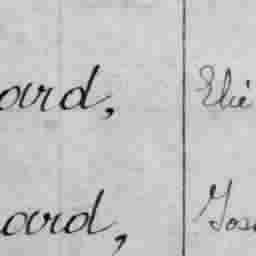 ard, Elie
ard, Jos